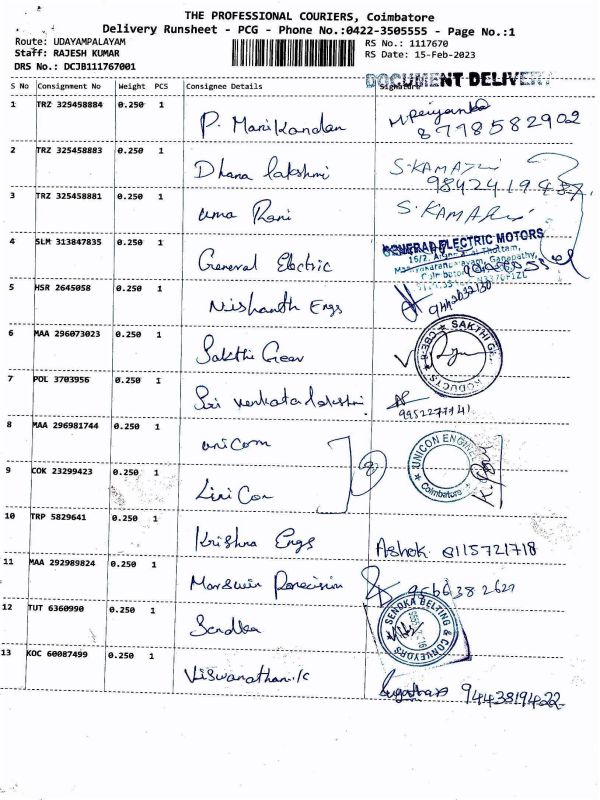 THE PROFESSIONAL COURIERS, Coimbatore
Delivery Runsheet - PCG - Phone No.:0422-3505555 - Page No.:1
Route: UDAYAMPALAYAM RS No.: 1117670
Staff: RAJESH KUMAR RS Date: 15-Feb-2023
DRS No.: DCJB111767001 DOCUMENT DELIVERY
S No Consignment No Weight PCS Consignee Details Signature
1 TRZ 325458884 0.250 1 P. Manikandan M. Priyanka
8798582902
2 TRZ 325458883 0.250 1 Dhana lakshmi
3 TRZ 325458881 0.250 1 uma Rani
4 SLM 313847835 0.250 1 General Electric GENERAL ELECTRIC MOTORS
5 HSR 2645058 0.250 1 Nishanth Engs
6 MAA 296073023 0.250 1 Sakthi Gear SAKTHI
7 POL 3703956 0.250 1 Sri venkatalakshmi
8 MAA 296981744 0.250 1 unicon UNICON
Coimbatore
9 COK 23299423 0.250 1
10 TRP 5829641 0.250 1 Krishna Engs Ashok 8115721718
11 MAA 292989824 0.250 1
12 TUT 6360990 0.250 1 BELTING & CONVEYORS
13 KOC 60087499 0.250 1 Viswanathan.k 9443819402